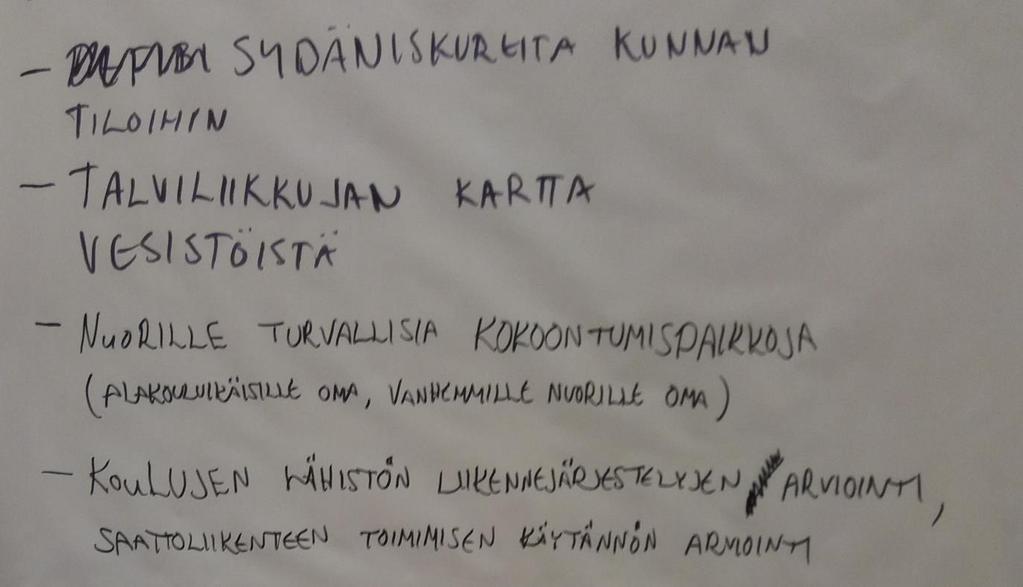 - SYDÄNISKUREITA KUNNAN
TILOIHIN
- TALVILIIKKUJAN KARTTA
VESISTÖISTÄ
- NUORILLE TURVALLISIA KOKOONTUMISPAIKKOJA
(ALAKOULUIKÄISILLE OMA, VANHEMMILLE NUORILLE OMA)
- KOULUJEN LÄHISTÖN LIIKENNEJÄRJESTELYJEN ARVIOINTI,
SAATTOLIIKENTEEN TOIMIMISEN KÄYTÄNNÖN ARVIOINTI